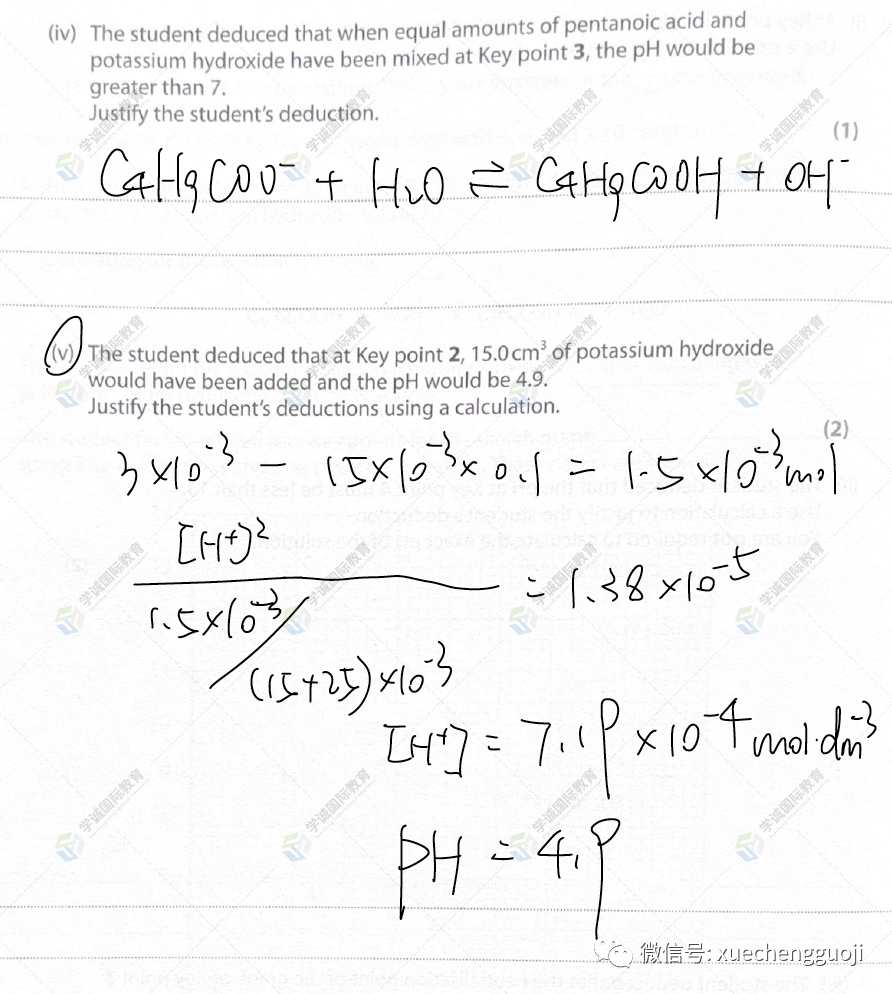 (iv) The student deduced that when equal amounts of pentanoic acid and
potassium hydroxide have been mixed at Key point 3, the pH would be
greater than 7.
Justify the student's deduction.
(1)
C4H9COO⁻ + H2O ⇌ C4H9COOH + OH⁻
(v) The student deduced that at Key point 2, 15.0 cm³ of potassium hydroxide
would have been added and the pH would be 4.9.
Justify the student's deductions using a calculation.
(2)
3×10⁻³ − 15×10⁻³×0.1 = 1.5×10⁻³ mol
[H⁺]²
= 1.38×10⁻⁵
1.5×10⁻³/
(15+25)×10⁻³
[H⁺] = 7.19×10⁻⁴ mol·dm⁻³
pH = 4.9
微信号: xuechengguoji
学诚国际教育